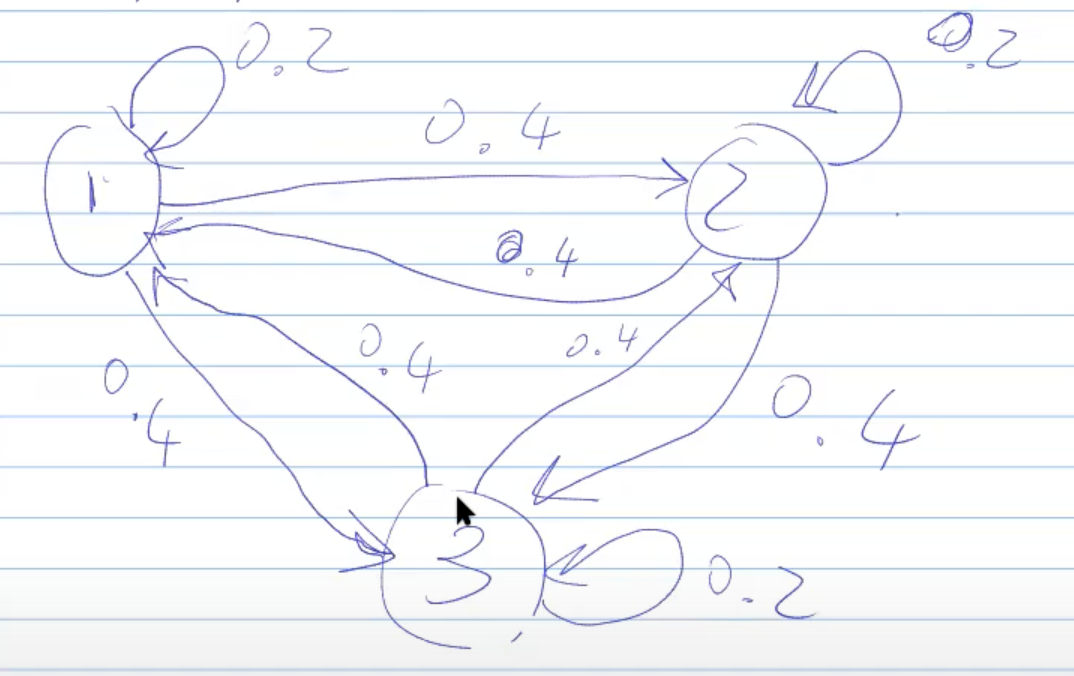 0.2
0.2
0.4
1
2
0.4
0.4
0.4
0.4
0.4
3
0.2